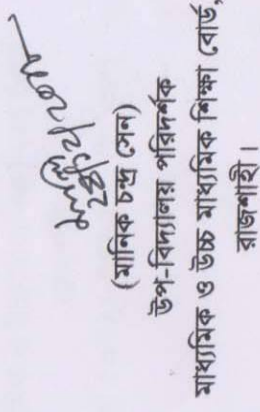 (মানিক চন্দ্র সেন)
উপ-বিদ্যালয় পরিদর্শক
মাধ্যমিক ও উচ্চ মাধ্যমিক শিক্ষা বোর্ড,
রাজশাহী।